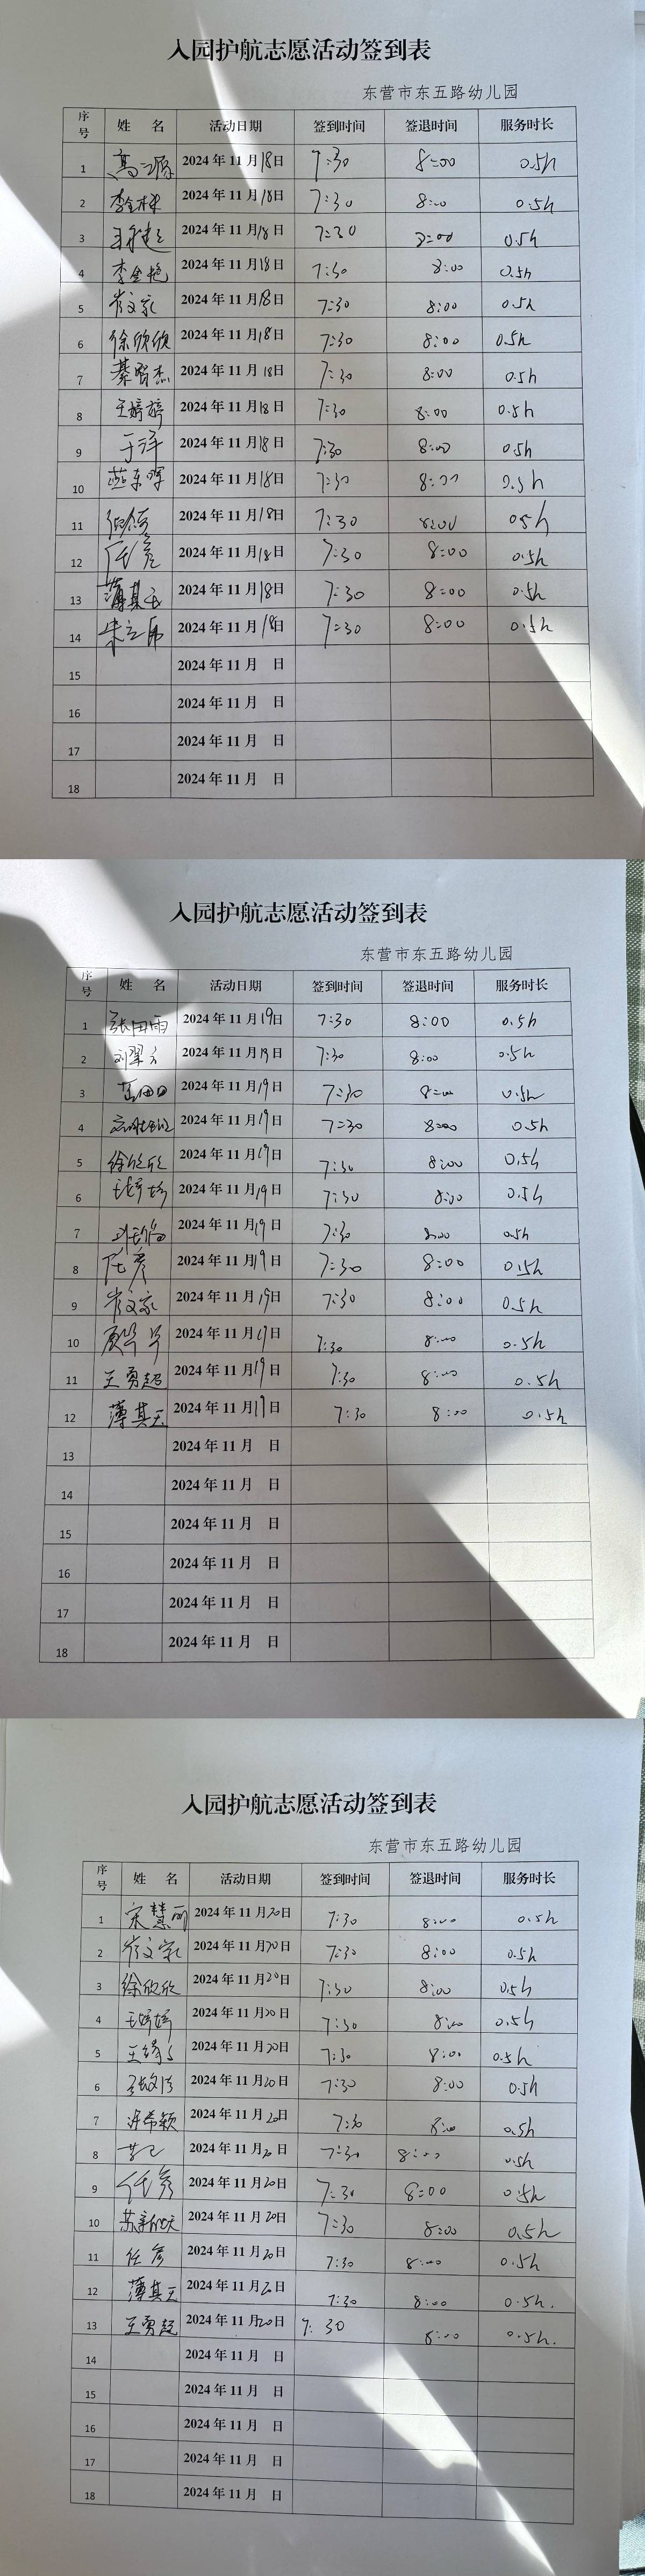 入园护航志愿活动签到表
东营市东五路幼儿园
序号 姓 名 活动日期 签到时间 签退时间 服务时长
1 2024年11月18日 7:30 8:00 0.5h
2 2024年11月18日 7:30 8:00 0.5h
3 2024年11月18日 7:30 8:00 0.5h
4 李金艳 2024年11月18日 7:30 8:00 0.5h
5 崔文家 2024年11月18日 7:30 8:00 0.5h
6 徐欣欣 2024年11月18日 7:30 8:00 0.5h
7 2024年11月18日 7:30 8:00 0.5h
8 王婷婷 2024年11月18日 7:30 8:00 0.5h
9 于洋 2024年11月18日 7:30 8:00 0.5h
10 燕东晖 2024年11月18日 7:30 8:00 0.5h
11 2024年11月18日 7:30 8:00 0.5h
12 任彦 2024年11月18日 7:30 8:00 0.5h
13 薄其玉 2024年11月18日 7:30 8:00 0.5h
14 2024年11月18日 7:30 8:00 0.5h
15 2024年11月 日
16 2024年11月 日
17 2024年11月 日
18 2024年11月 日
入园护航志愿活动签到表
东营市东五路幼儿园
序号 姓 名 活动日期 签到时间 签退时间 服务时长
1 2024年11月19日 7:30 8:00 0.5h
2 2024年11月19日 7:30 8:00 0.5h
3 2024年11月19日 7:30 8:00 0.5h
4 2024年11月19日 7:30 8:00 0.5h
5 徐欣欣 2024年11月19日 7:30 8:00 0.5h
6 王婷婷 2024年11月19日 7:30 8:00 0.5h
7 2024年11月19日 7:30 8:00 0.5h
8 任彦 2024年11月19日 7:30 8:00 0.5h
9 崔文家 2024年11月19日 7:30 8:00 0.5h
10 2024年11月19日 7:30 8:00 0.5h
11 王勇超 2024年11月19日 7:30 8:00 0.5h
12 薄其玉 2024年11月19日 7:30 8:00 0.5h
13 2024年11月 日
14 2024年11月 日
15 2024年11月 日
16 2024年11月 日
17 2024年11月 日
18 2024年11月 日
入园护航志愿活动签到表
东营市东五路幼儿园
序号 姓 名 活动日期 签到时间 签退时间 服务时长
1 宋慧丽 2024年11月20日 7:30 8:00 0.5h
2 崔文家 2024年11月20日 7:30 8:00 0.5h
3 徐欣欣 2024年11月20日 7:30 8:00 0.5h
4 王婷婷 2024年11月20日 7:30 8:00 0.5h
5 2024年11月20日 7:30 8:00 0.5h
6 2024年11月20日 7:30 8:00 0.5h
7 许希颖 2024年11月20日 7:30 8:00 0.5h
8 2024年11月20日 7:30 8:00 0.5h
9 任彦 2024年11月20日 7:30 8:00 0.5h
10 2024年11月20日 7:30 8:00 0.5h
11 任彦 2024年11月20日 7:30 8:00 0.5h
12 薄其玉 2024年11月20日 7:30 8:00 0.5h.
13 王勇超 2024年11月20日 7:30 8:00 0.5h.
14 2024年11月 日
15 2024年11月 日
16 2024年11月 日
17 2024年11月 日
18 2024年11月 日